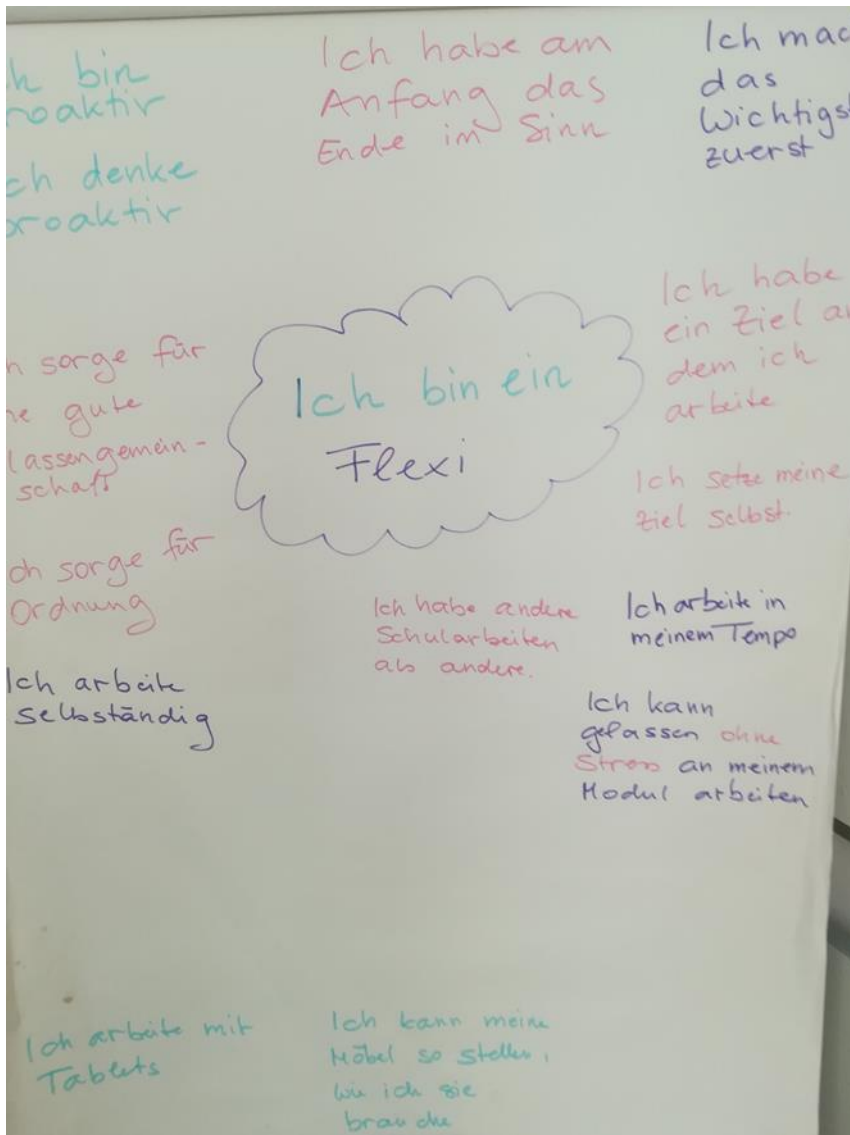 h bin
roaktiv
ch denke
proaktiv
Ich habe am
Anfang das
Ende im Sinn
Ich mac
das
Wichtigst
zuerst
Ich bin ein
Flexi
Ich habe
ein Ziel an
dem ich
arbeite
Ich setze meine
Ziel selbst.
h sorge für
ne gute
lassengemein-
schaft
ch sorge für
Ordnung
Ich arbeite
selbständig
Ich habe andere
Schularbeiten
als andere.
Ich arbeite in
meinem Tempo
Ich kann
gelassen ohne
Stress an meinem
Modul arbeiten
Ich arbeite mit
Tablets
Ich kann meine
Möbel so stellen,
wie ich sie
brauche